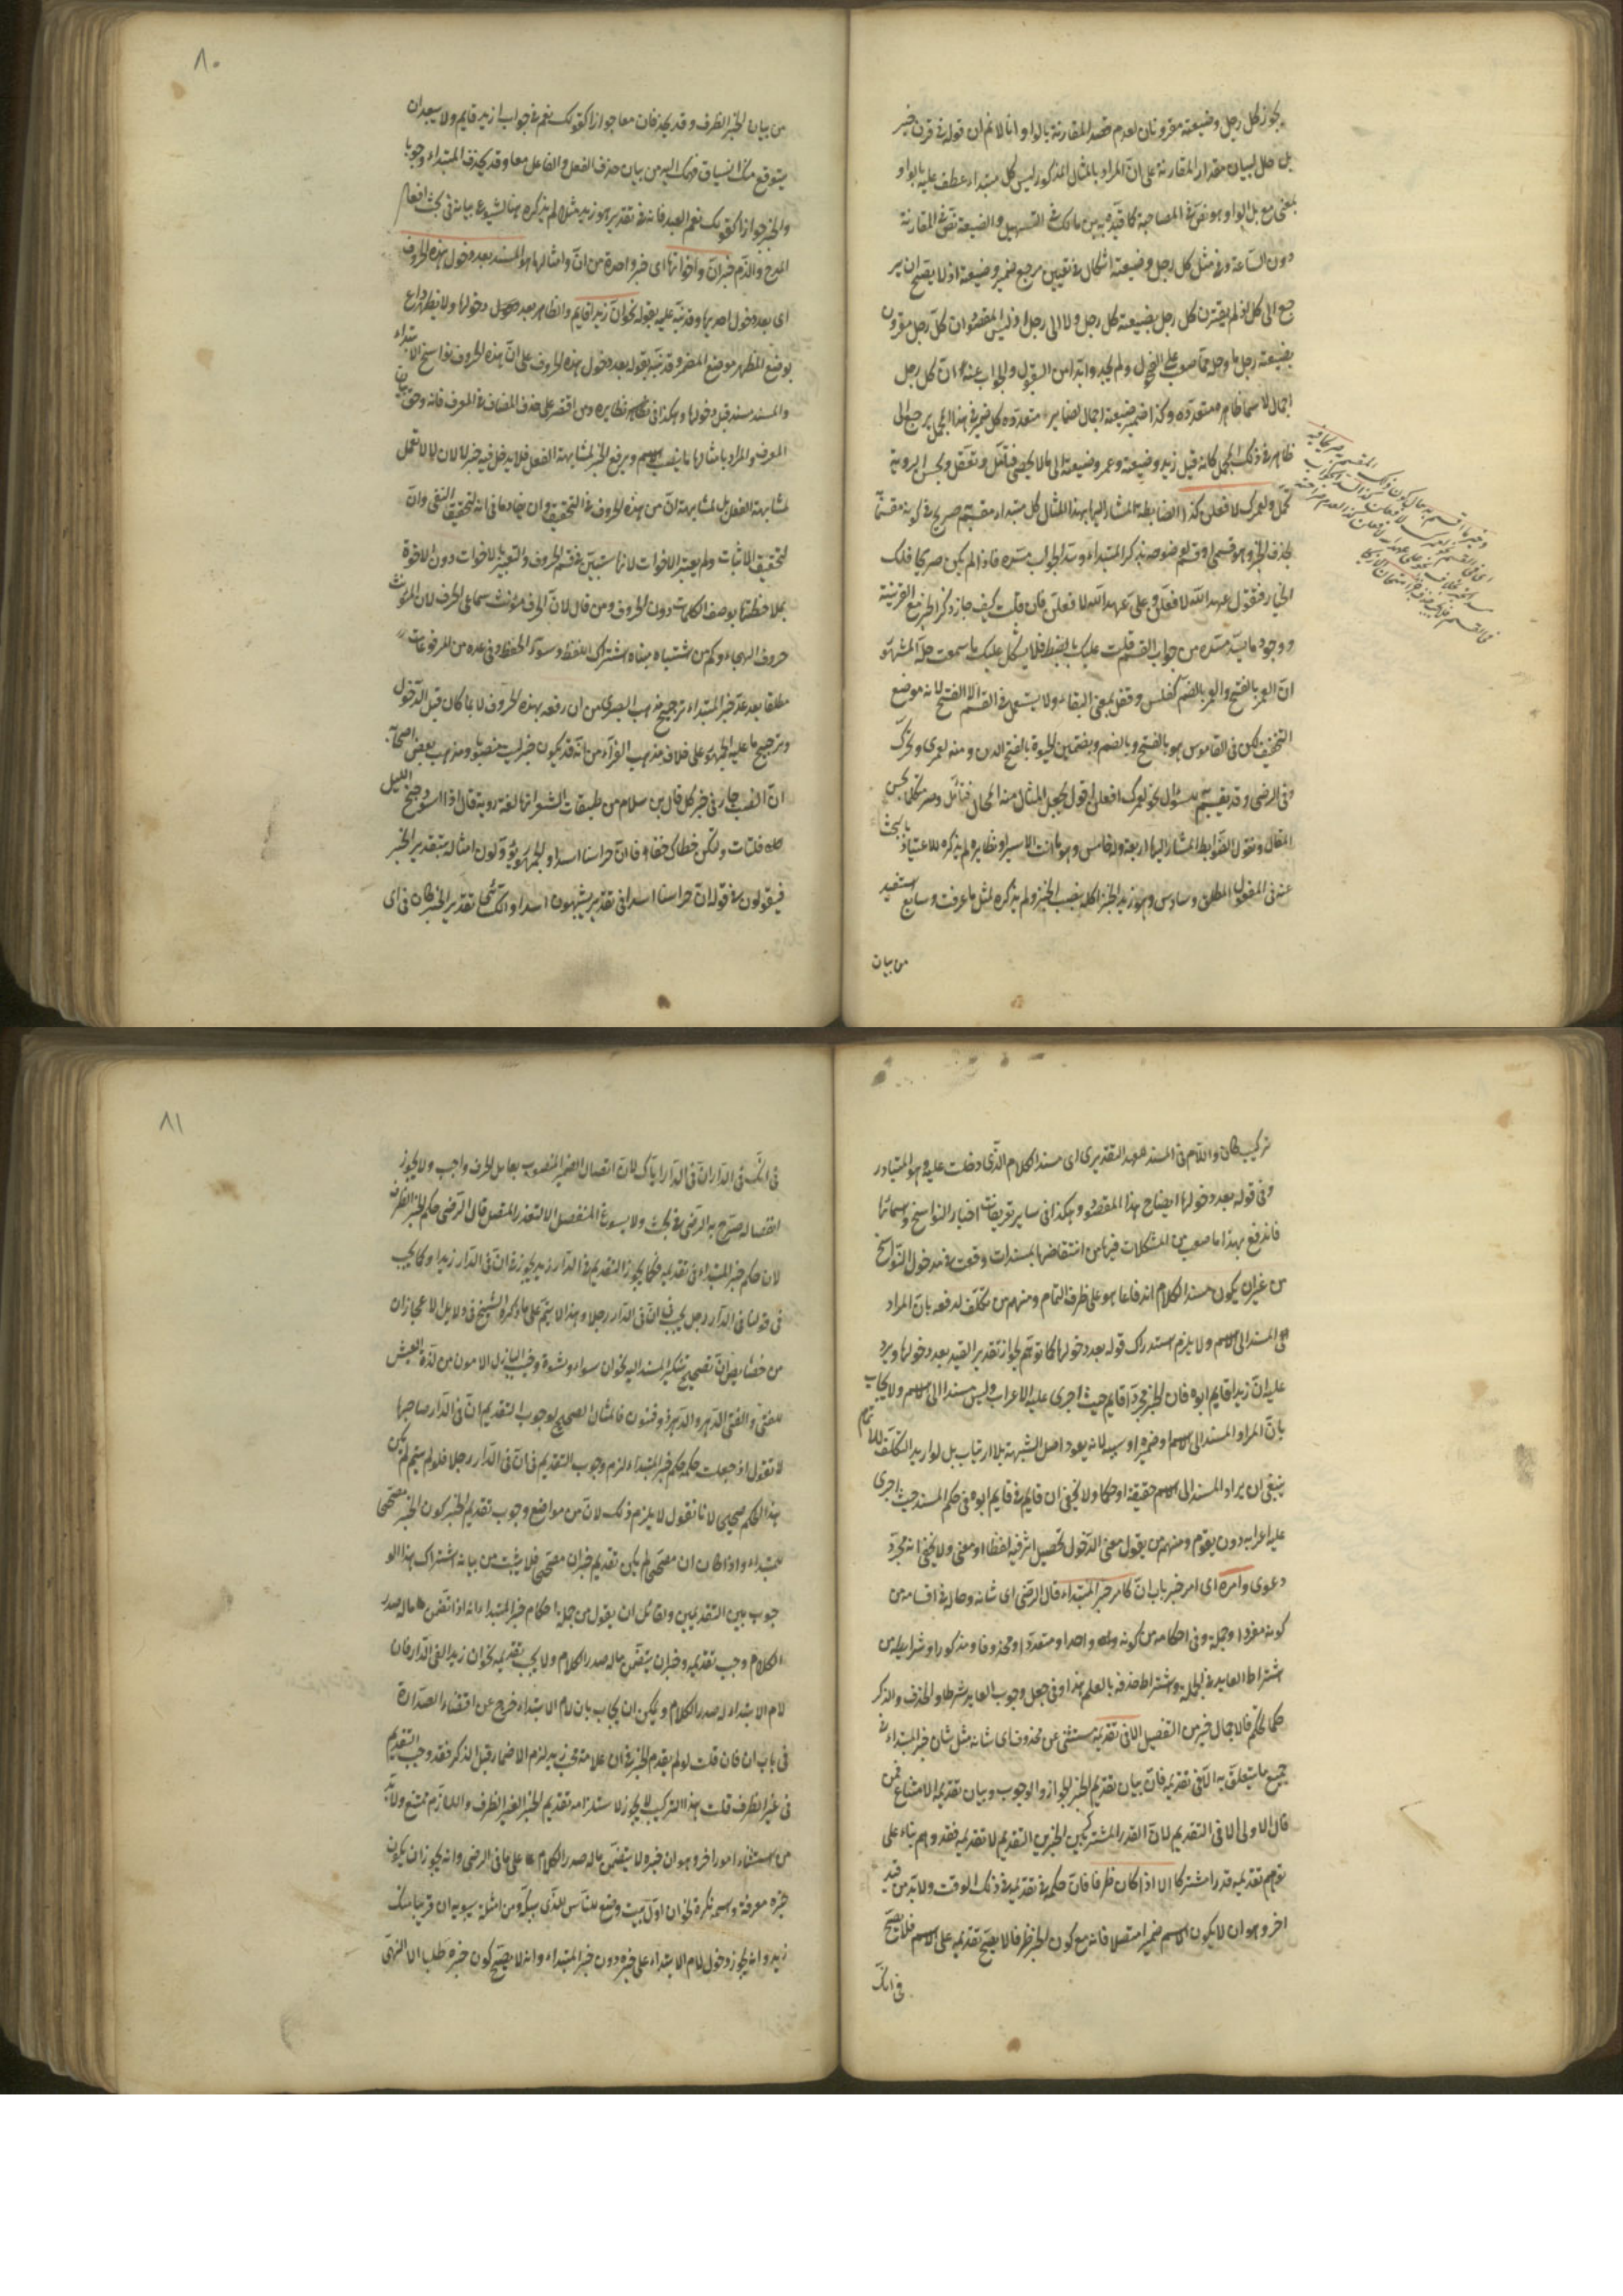 يجوز كل رجل وضيعته مقرونان لعدم قصد المقارنة بالواو انا لا نم ان قوله في قرن خبر
بل حال لبيان مقدار المقارنة على ان المراد بالمثال المذكور ليس كل مبتداء عطف عليه بالواو
بمعنى مع بل الواو هو نص في المصاحبة كما قيده به ابن مالك في التسهيل والضيعة نص في المقارنة
دون الساعة وفي مثل كل رجل وضيعته اشكال في تعيين مرجع ضمير وضيعته اذ لا يصلح ان ير
جع الى كل اذ لم يقترن كل رجل بضيعة كل رجل ولا الى رجل اذ ليس المقصود ان كل رجل مقرون
بضيعة رجل ما وحله مما صعب على الفحول ولم يجدوا بدا من القول والجواب عنه ان كل رجل
اجمال لاسماء ظاهرة متعددة وكذا ضمير ضيعته اجمال لضماير متعددة كل ضمير في هذا المجمل يرجع الى
ظاهر في ذلك المجمل كانه قيل زيد وضيعته وعمرو وضيعته الى ما لا يحصى فتأمل وتعقل
ولعمرك لافعلن كذا الضابطة المشار اليها بهذا المثال كل مبتداء مقسم به صريح في كونه مقسما
لحذف الخبر وهو قسمي او قسم لخصوصه بذكر المبتداء وسد الجواب مسده فاذا لم يكن صريحا فلك
الخيار فتقول عهد الله لافعلن وعلي عهد الله لافعلن فان قلت كيف جاز ذكر الخبر مع القرينة
ووجود ما يسد مسده من جواب القسم قلت عليك بالضبط فلا يشكل عليك ما سمعت
ان العمر بالفتح والعمر بالضم كفلس وقفل بمعنى البقاء ولا يستعمل في القسم الا الفتح لانه موضع
التخفيف لكن في القاموس هو بالفتح وبالضم وبضمتين الحيوة بالفتح الدين ومنه لعمري ولعمرك
وفي الرضي وقد يقسم به بسؤال نحو لعمرك افعلن اقول لجعل المثال منه المجال فتأمل
المقال ونقول الضوابط المشار اليها اربعة وله خامس وهو ما انت الا سيرا ونظايره لم يذكره للاعتياد بالبحث
عنه في المفعول المطلق وسادس وهو زيد الخبز اكله بنصب الخبز ولم يذكره لمثل ما عرفت وسابع استفيد
من بيان
٨٠
من بيان الخبر الظرف وقد يحذفان معا جوازا كقولك نعم في جواب ازيد قايم ولا يبعد ان
يتوقع منك انسياق فهمك اليه من بيان حذف الفعل والفاعل معا وقد يحذف المبتداء وجوبا
والخبر جوازا كقولك نعم العبد فانه في تقدير هو زيد مثلا لم يذكره هنا لشيوع بيانه في بحث افعال
المدح والذم خبر ان واخواتها اى خبر واحدة من ان وامثالها هو المسند بعد دخول هذه الحروف
اى بعد دخول احديها وقد نبه عليه بقوله نحو ان زيدا قايم والظاهر بعد دخولها ولا يظهر داع
لوضع المظهر موضع المضمر وقد نبه بقوله بعد دخول هذه الحروف على ان هذه الحروف نواسخ الابتداء
والمسند مسند قبل دخولها وهكذا في نظايره ومن اقتصر على حذف المضاف في المعرف فاته وحق بيان
المعرف والمراد بامثالها ما ينصب الاسم ويرفع الخبر لمشابهة الفعل فلا يدخل فيه خبر لا لان لا لا تعمل
لمشابهة الفعل بل لمشابهة ان من هذه الحروف في التحقيق وان يضادها في انه لتحقيق النفي وان
لتحقيق الاثبات ولم يعتبر الاخوات لانها ستبين في قسم الحروف والتعبير بالاخوات دون الاخوة
بملاحظتها بوصف الكلمات دون الحروف ومن قال لان الحرف مؤنث سماعي الحرف لان المؤنث
حروف الهجاء وكم من اشتباه مبناه اشتراك اللفظ وسوء الحفظ وفي عده من المرفوعات
مطلقا بعد عد خبر المبتداء ترجيح مذهب البصري من ان رفعه بهذه الحروف لا بما كان قبل الدخول
وترجيح ما عليه الجمهور على خلاف مذهب الفراء من انه قد يكون خبر ليت منصوبا ومذهب بعض اصحابه
ان النصب جار في خبر كل قال ابن سلام من طبقات الشعراء انها لغة روية قال اذا اسود جنح الليل
فلتات ولتكن خطاك خفافا فان حراسنا اسدا والجمهور يؤولون امثاله بتقدير الخبر
فيقولون في قوله ان حراسنا اسدا في تقدير يشبهون اسدا والكسائي تقدير الخبر كان في اى
تركيب كان واللام في المسند للعهد التقديري اى مسند الكلام الذي دخلت عليه وهو المتبادر
وفي قوله بعد دخولها ايضاح هذا المقصود وهكذا في ساير تعريفات اخبار النواسخ واسمائها
فاندفع بهذا ما صعب من المشكلات فيها من انتقاضها بمسندات وقعت في مدخول النواسخ
من غير ان يكون مسند الكلام اندفاعا هو على طرف التمام ومنهم من تكلف لدفعه بان المراد
المسند الى الاسم ولا يلزم استدراك قوله بعد دخولها كما توهم لجواز تقدير القيد بعد دخولها ويرد
عليه ان زيدا قايم ابوه فان الخبر مجرد قايم حيث اجرى عليه الاعراب وليس مسندا الى الاسم ولا يجاب
بان المراد المسند الى الاسم او ضميره او سببه لانه يعود اصل الشبهة بلا ارتياب بل لو اريد التكلف للاتمام
ينبغي ان يراد المسند الى الاسم حقيقة او حكما ولا يخفى ان قايم في قايم ابوه في حكم المسند حيث اجرى
عليه اعرابه دون يقوم ومنهم من يقول معنى الدخول تحصيل اثر فيه لفظا او معنى ولا يخفى انه مجرد
دعوى وامره اى امر خبر باب ان كامر خبر المبتداء قال الرضي اى شانه وحاله في اقسامه من
كونه مفردا وجملة وفي احكامه من كونه واحدا ومتعددا ومحذوفا ومذكورا وشرايطه من
اشتراط العايد في الجملة واشتراط حذفه بالعلم هذا وفي جعل وجوب العايد شرطا والحذف والذكر
حكما تحكم فالاجمال خير من التفصيل الا في تقديمه مستثنى عن محذوف اى شانه مثل شان خبر المبتداء في
جميع ما يتعلق به الا في تقديمه فان بيان تقديم الخبر الجواز والوجوب وبيان تقديمه الامتناع فمن
قال الاولى الا في التقديم لان القدر المشترك بين الخبرين التقديم لا تقديمه فقد وهم بناء على
توهم تقديمه قدرا مشتركا الا اذا كان ظرفا فان حكمه في تقديمه في ذلك الوقت ولا بد من قيد
اخر وهو ان لا يكون الاسم ضميرا متصلا فانه مع كون الخبر ظرفا لا يصح تقديمه على الاسم فلا يصح
في انك
٨١
في انك في الدار ان في الدار اياك لان اتصال الضمير المنصوب بعامل الحرف واجب ولا يجوز
انفصاله صرح به الرضي في بحث ولا يسوغ المنفصل الا لتعذر المتصل قال الرضي حكم الخبر الظرف
لان حكم خبر المبتداء في تقديمه فكما يجوز التقديم في الدار زيد يجوز في ان في الدار زيدا وكما يجب
في قولنا في الدار رجل يجب في ان في الدار رجلا وهذا لا يتم على ما ذكره الشيخ في دلايل الاعجاز ان
من خصايص ان تصحيح تنكير المسند اليه نحو ان شواء ونشوة وخبب البازل الامون من لذة العيش
للفتى والفتى للدهر والدهر ذو فنون فالمثال الصحيح لوجوب التقديم ان في الدار صاحبها
لا تقول اذ جعلت حكمه حكم خبر المبتداء لزم وجوب التقديم في ان في الدار رجلا فلو لم يتم لم يكن
هذا الحكم صحيحا لانا نقول لا يلزم ذلك لان من مواضع وجوب تقديم الخبر كون الخبر مصححا
للمبتداء واذا كان ان مصححا لم يكن تقديم خبر ان مصححا فلا يثبت من بيانه اشتراك هذا الو
جوب بين التقديمين ولقائل ان يقول من جملة احكام خبر المبتداء انه اذا تضمن ما له صدر
الكلام وجب تقديمه وخبر ان يتضمن ما له صدر الكلام ولا يجب تقديمه نحو ان زيدا لفي الدار فان
لام الابتداء له صدر الكلام ويمكن ان يجاب بان لام الابتداء خرج عن اقتضاء الصدارة
في باب ان فان قلت لو لم يقدم الخبر في ان غلامه مخر به يلزم الاضمار قبل الذكر فقد وجب التقديم
في غير الظرف قلت هذا التركيب لا يجوز لاستلزامه تقديم الخبر الغير الظرف واللازم ممتنع ولا بد
من استثناء امور اخر وهو ان خبره لا يتضمن ما له صدر الكلام على ما في الرضي وانه يجوز ان يكون
خبره معرفة واسمه نكرة نحو ان اول بيت وضع للناس للذي ببكة ومن امثلة سيبويه ان قريبا منك
زيد وانه يجوز دخول لام الابتداء على خبره دون خبر المبتداء وانه لا يصح كون خبره طلبا لا النهي